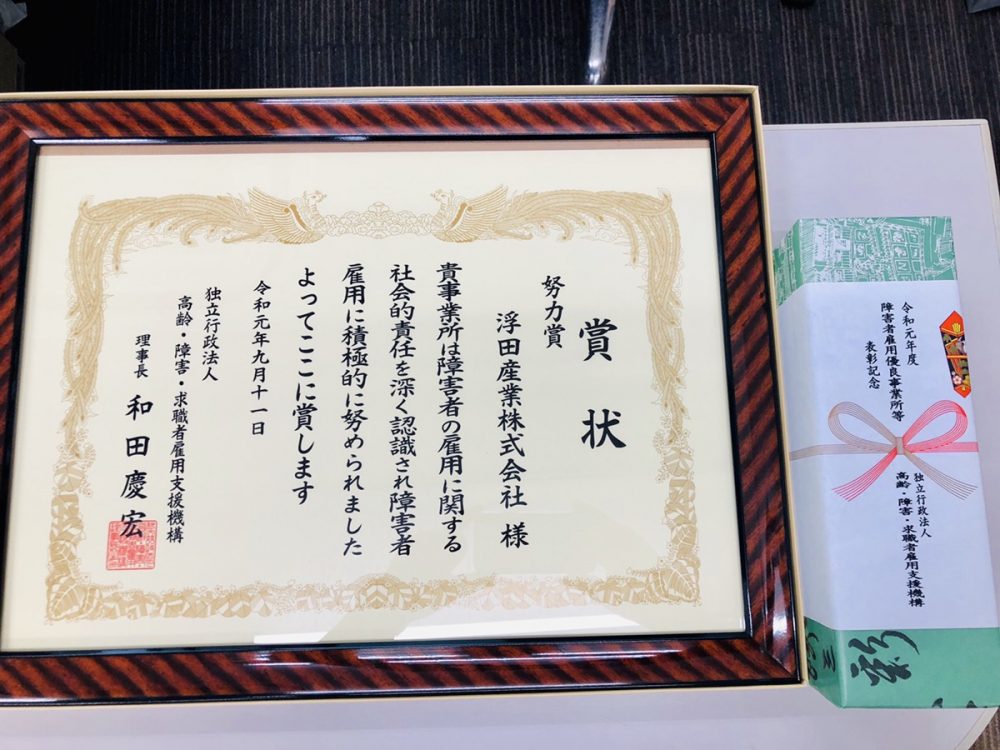 賞状
努力賞
浮田産業株式会社 様
貴事業所は障害者の雇用に関する
社会的責任を深く認識され障害者
雇用に積極的に努められました
よってここに賞します
令和元年九月十一日
独立行政法人
高齢・障害・求職者雇用支援機構
理事長 和田慶宏
令和元年度
障害者雇用優良事業所等
表彰記念
独立行政法人
高齢・障害・求職者雇用支援機構